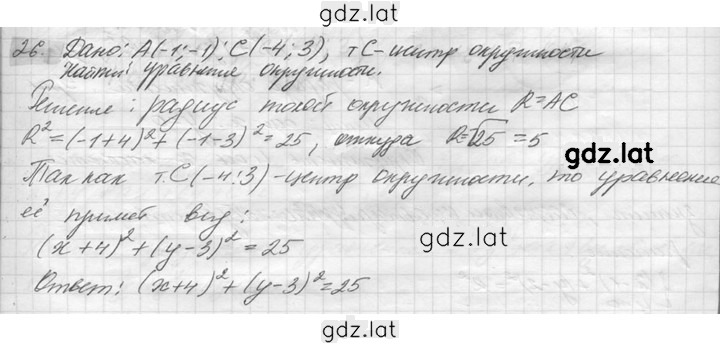 gdz.lat
26. Дано: A(-1;-1); C(-4;3), т C-центр окружности
Найти: уравнение окружности.
Решение: радиус такой окружности R=AC
R²=(-1+4)²+(-1-3)²=25, откуда R=√25=5
gdz.lat
Так как т.C(-4;3)-центр окружности, то уравнение
её примет вид:
gdz.lat
(x+4)²+(y-3)²=25
Ответ: (x+4)²+(y-3)²=25
gdz.lat
gdz.lat